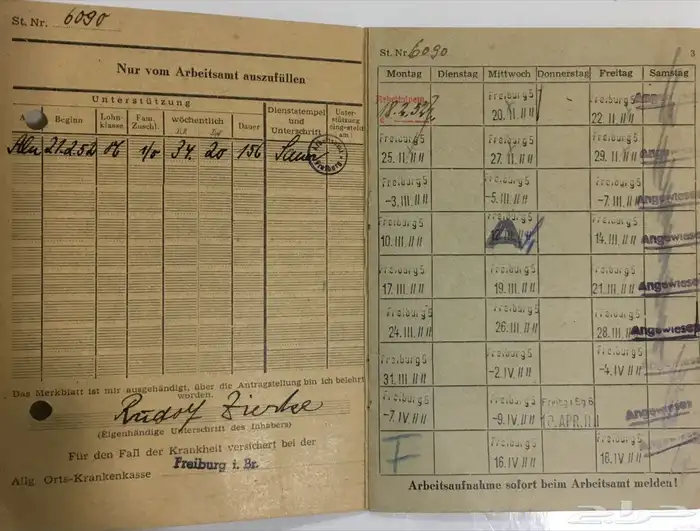 St. Nr. 6090
Nur vom Arbeitsamt auszufüllen
Unterstützung
Beginn
Lohn-
klasse
Fam.
Zuschl.
wöchentlich
Dauer
Dienststempel
und
Unterschrift
Unter-
stützung
eingestellt
am:
21.2.52 34. 20 156
Das Merkblatt ist mir ausgehändigt, über die Antragstellung bin ich belehrt
worden.
Rudolf
(Eigenhändige Unterschrift des Inhabers)
Für den Fall der Krankheit versichert bei der
Allg. Orts-Krankenkasse Freiburg i. Br.
St. Nr. 6090
3
Montag Dienstag Mittwoch Donnerstag Freitag Samstag
Freiburg 5 Freiburg 5
20. II. 22. II.
Freiburg 5 Freiburg 5 Freiburg 5
25. II. 27. II. 29. II.
Freiburg 5 Freiburg 5 Freiburg 5
-3. III. -5. III. -7. III. Angewiesen
Freiburg 5 Freiburg 5 Freiburg 5
10. III. 12. III. 14. III. Angewiesen
Freiburg 5 Freiburg 5 Freiburg 5
17. III. 19. III. 21. III. Angewiesen
Freiburg 5 Freiburg 5 Freiburg 5
24. III. 26. III. 28. III. Angewiesen
Freiburg 5 Freiburg 5 Freiburg 5
31. III. -2. IV. -4. IV.
Freiburg 5 Freiburg 5 Freiburg 5
-7. IV. -9. IV. 10. APR. Angewiesen
F Freiburg 5 Freiburg 5
16. IV. 18. IV.
Arbeitsaufnahme sofort beim Arbeitsamt melden!